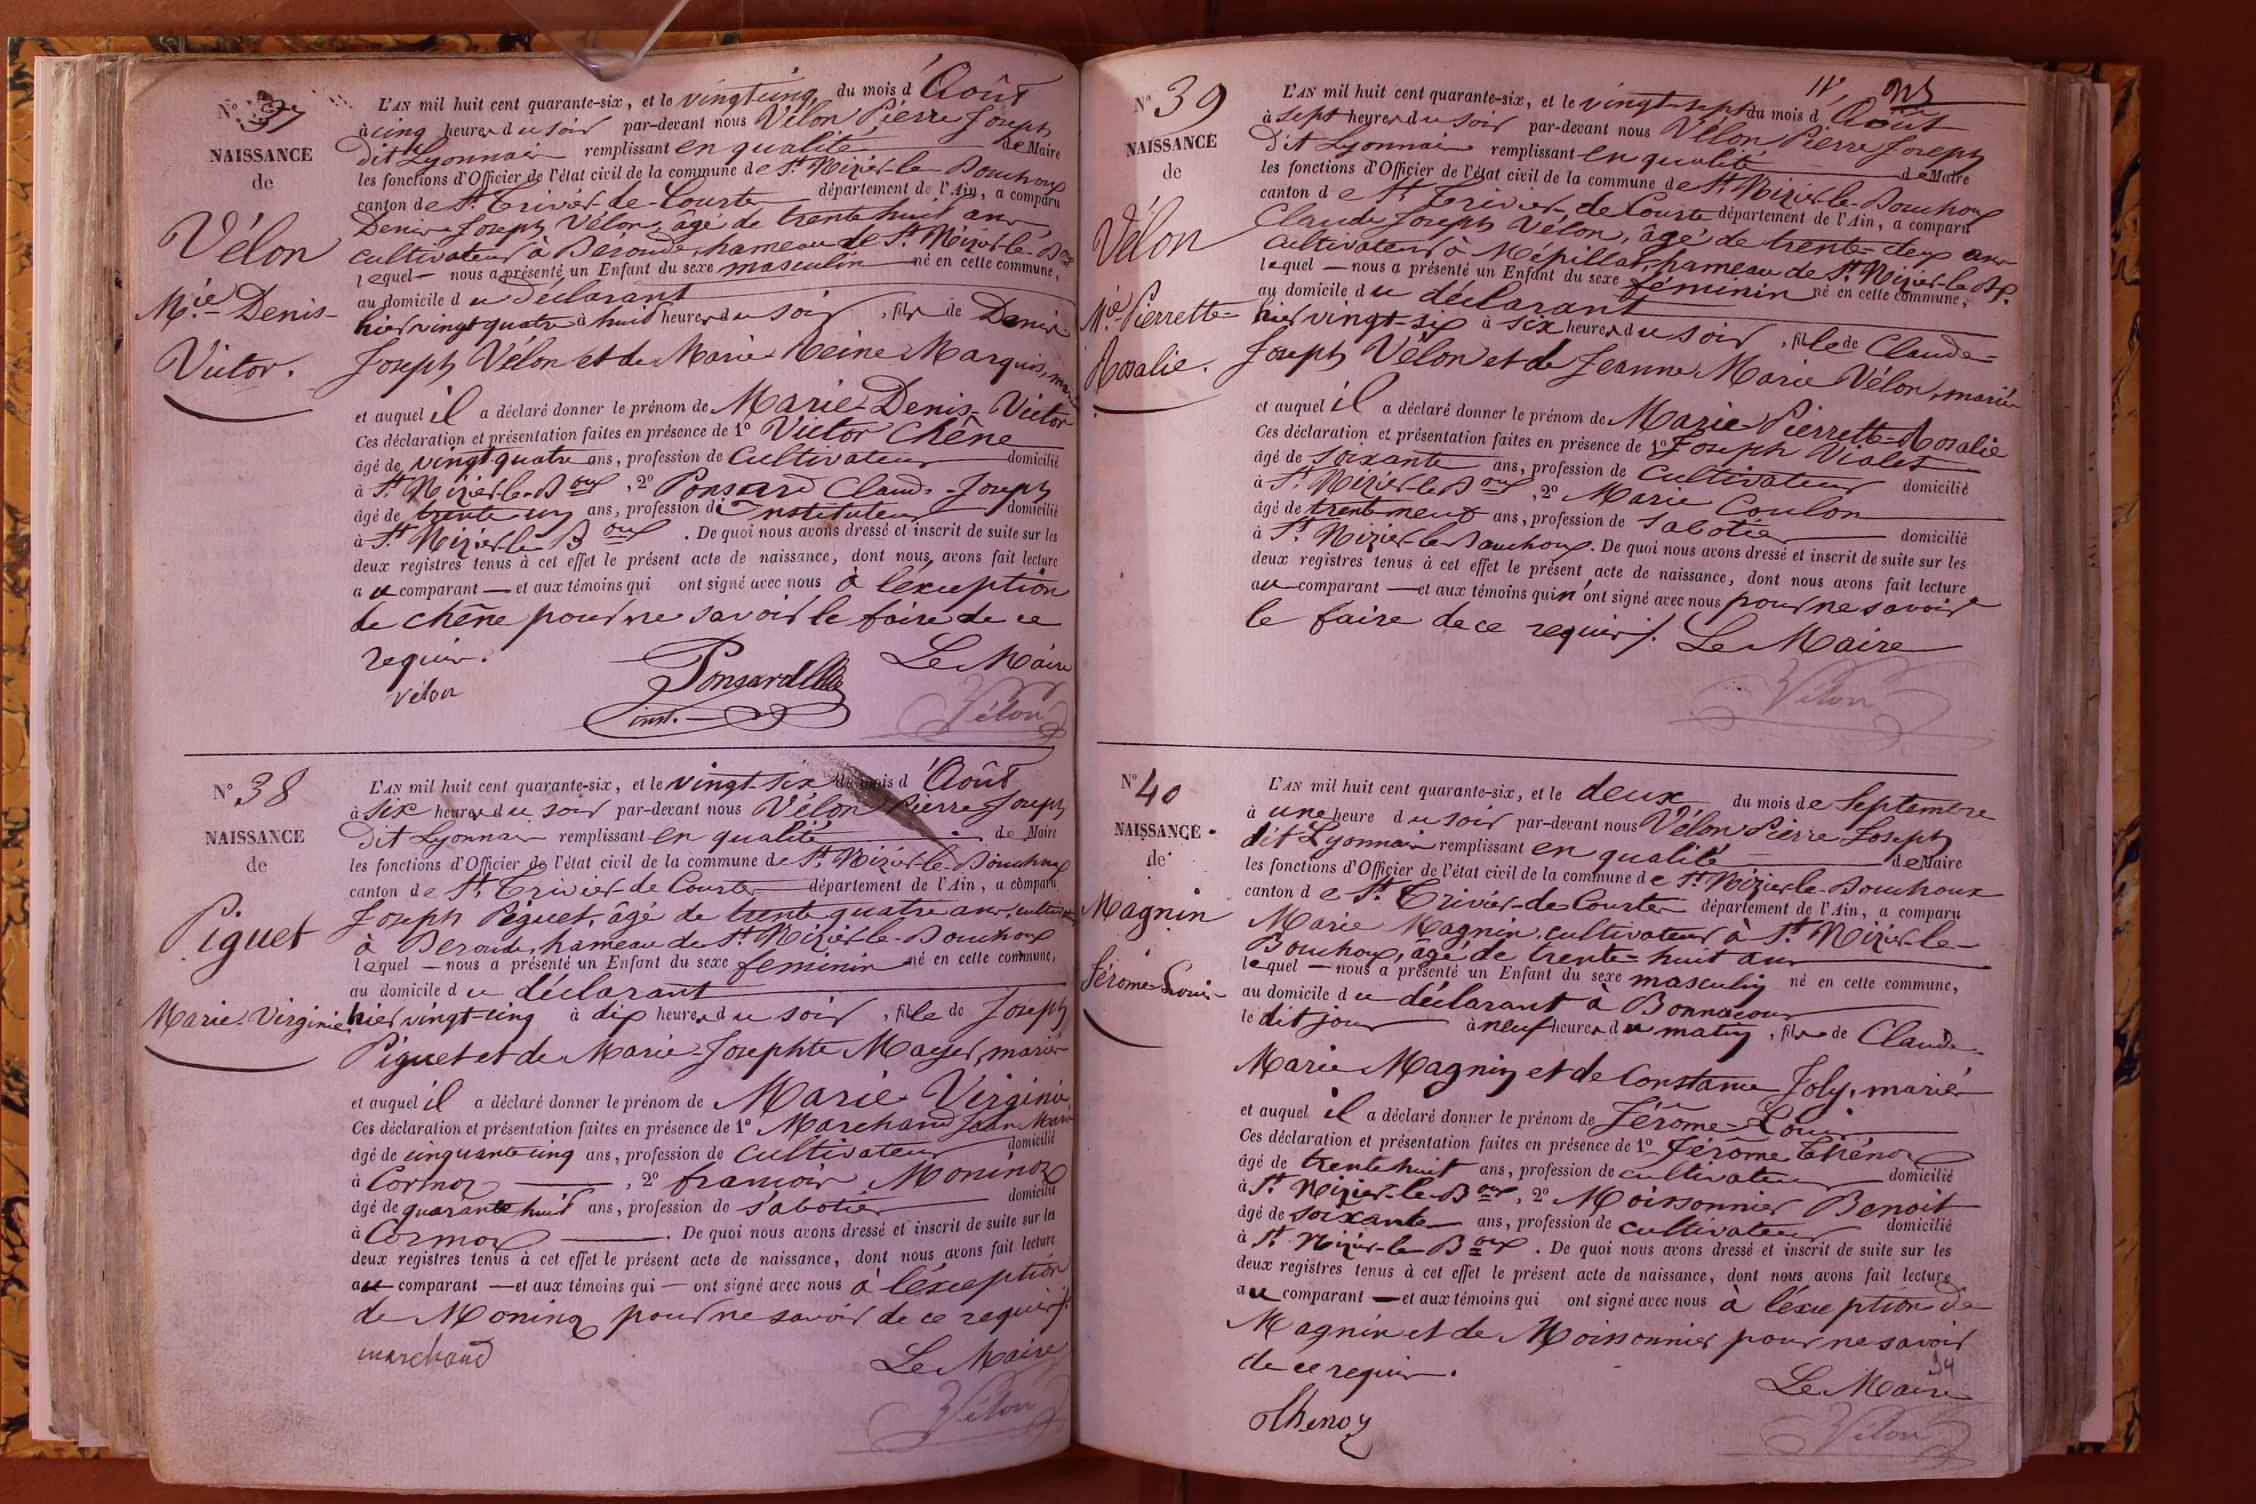 N.º 37
NAISSANCE
de
Vélon
M.ie Denis-
Victor.
L'AN mil huit cent quarante-six, et le vingt cinq du mois d'Août
à cinq heures du soir par-devant nous Vélon Pierre Joseph
dit Lyonnais remplissant en qualité de Maire
les fonctions d'Officier de l'état civil de la commune de St. Nizier-le-Bouchoux
canton de St. Trivier-de-Courtes département de l'Ain, a comparu
Denis-Joseph Vélon, âgé de trente huit ans
cultivateur à Beroude, hameau de St. Nizier-le-Boux
lequel — nous a présenté un Enfant du sexe masculin né en cette commune,
au domicile du Déclarant
hier vingt quatre à huit heures du soir, fils de Denis-
Joseph Vélon et de Marie Reine Marquis, mariés
et auquel il a déclaré donner le prénom de Marie-Denis-Victor
Ces déclaration et présentation faites en présence de 1º Victor Chêne
âgé de vingt-quatre ans, profession de Cultivateur domicilié
à St. Nizier-le-Boux, 2º Ponsard Claude-Joseph
âgé de trente un ans, profession d'Instituteur domicilié
à St. Nizier-le-Boux. De quoi nous avons dressé et inscrit de suite sur les
deux registres tenus à cet effet le présent acte de naissance, dont nous avons fait lecture
au comparant — et aux témoins qui ont signé avec nous à l'exception
de Chêne pour ne savoir le faire de ce
requis.
Le Maire
vélon
Ponsard
inst.
Vélon
Nº 38
NAISSANCE
de
Piguet
Marie-Virginie
L'AN mil huit cent quarante-six, et le vingt-six du mois d'Août
à six heures du soir par-devant nous Vélon Pierre Joseph
Dit Lyonnais remplissant en qualité de Maire
les fonctions d'Officier de l'état civil de la commune de St. Nizier-le-Bouchoux
canton de St. Trivier-de-Courtes département de l'Ain, a comparu
Joseph Piguet, âgé de trente quatre ans, cultivateur
à Beroude, hameau de St. Nizier-le-Bouchoux
lequel — nous a présenté un Enfant du sexe feminin né en cette commune,
au domicile du déclarant
hier vingt-cinq à dix heures du soir, fille de Joseph
Piguet et de Marie-Josephte Mayer, mariés
et auquel il a déclaré donner le prénom de Marie Virginie
Ces déclaration et présentation faites en présence de 1º Marchand Jean Marie
âgé de cinquante cinq ans, profession de Cultivateur domicilié
à Cormoz, 2º françois Moninoz
âgé de quarante huit ans, profession de sabotier domicilié
à Cormoz. De quoi nous avons dressé et inscrit de suite sur les
deux registres tenus à cet effet le présent acte de naissance, dont nous avons fait lecture
au comparant — et aux témoins qui — ont signé avec nous à l'exception
de Moninoz pour ne savoir de ce requis /.
Le Maire
marchand
Vélon
Nº 39
NAISSANCE
de
Vélon
M.ie Pierrette-
Rosalie.
L'AN mil huit cent quarante-six, et le vingt-sept du mois d'Août
à sept heures du soir par-devant nous Vélon Pierre Joseph
Dit Lyonnais remplissant en qualité de Maire
les fonctions d'Officier de l'état civil de la commune de St. Nizier-le-Bouchoux
canton de St. Trivier de Courtes département de l'Ain, a comparu
Claude Joseph Vélon, âgé de trente-deux ans
cultivateur à Mépillat, hameau de St. Nizier-le-Bx.
lequel — nous a présenté un Enfant du sexe féminin né en cette commune,
au domicile du déclarant
hier vingt-six à six heures du soir, fille de Claude-
Joseph Vélon et de Jeanne Marie Vélon, mariés
et auquel il a déclaré donner le prénom de Marie-Pierrette-Rosalie
Ces déclaration et présentation faites en présence de 1º Joseph Vialet
âgé de soixante ans, profession de Cultivateur domicilié
à St. Nizier-le-Boux, 2º Marie Coulon
âgé de trente neuf ans, profession de Sabotier domicilié
à St. Nizier-le-Bouchoux. De quoi nous avons dressé et inscrit de suite sur les
deux registres tenus à cet effet le présent acte de naissance, dont nous avons fait lecture
au comparant — et aux témoins qui n'ont signé avec nous pour ne savoir
le faire de ce requis /. Le Maire
Vélon
Nº 40
NAISSANCE
de
Magnin
Jérome-Louis-
L'AN mil huit cent quarante-six, et le deux du mois de Septembre
à une heure du soir par-devant nous Vélon Pierre Joseph
dit Lyonnais remplissant en qualité de Maire
les fonctions d'Officier de l'état civil de la commune de St. Nizier-le-Bouchoux
canton de St. Trivier-de-Courtes département de l'Ain, a comparu
Marie Magnin, cultivateur à St. Nizier-le-
Bouchoux, âgé de trente-huit ans
lequel — nous a présenté un Enfant du sexe masculin né en cette commune,
au domicile du déclarant à Bonnacour
le dit jour à neuf heures du matin, fils de Claude-
Marie Magnin et de Constance Joly, mariés
et auquel il a déclaré donner le prénom de Jérôme-Louis
Ces déclaration et présentation faites en présence de 1º Jérôme Thénoz
âgé de trente huit ans, profession de cultivateur domicilié
à St. Nizier-le-Boux, 2º Moissonnier Benoit
âgé de soixante ans, profession de cultivateur domicilié
à St. Nizier-le-Boux. De quoi nous avons dressé et inscrit de suite sur les
deux registres tenus à cet effet le présent acte de naissance, dont nous avons fait lecture
au comparant — et aux témoins qui ont signé avec nous à l'exception de
Magnin et de Moissonnier pour ne savoir
de ce requis.
Le Maire
thenoz
Vélon